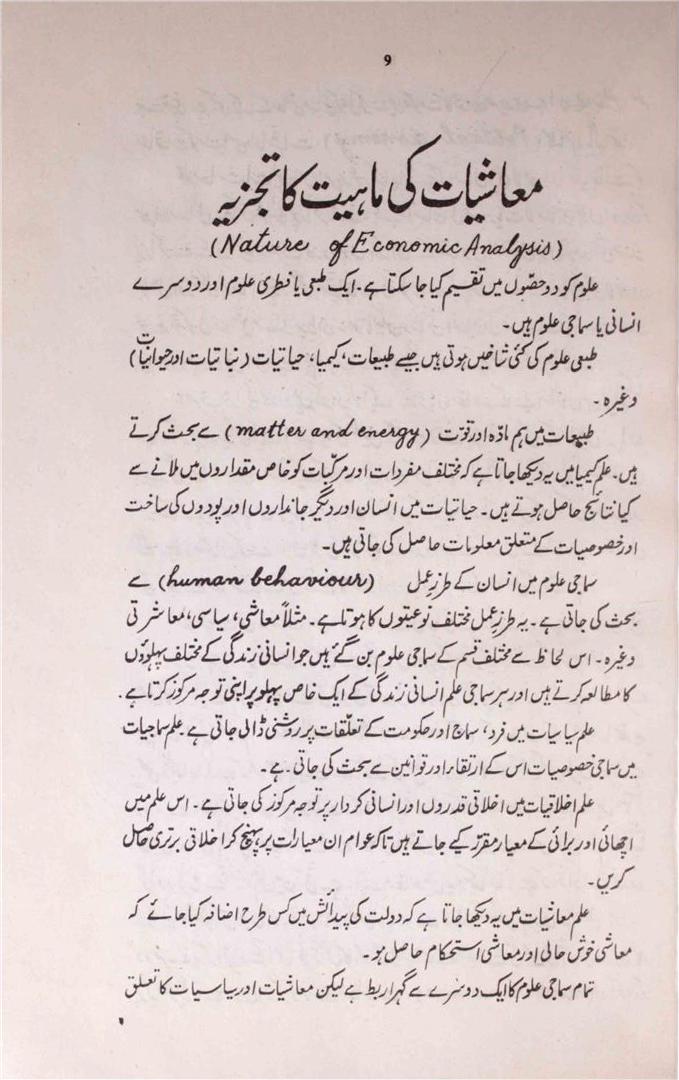 ۹
معاشیات کی ماہیت کا تجزیہ
(Nature of Economic Analysis)
علوم کو دو حصّوں میں تقسیم کیا جا سکتا ہے۔ ایک طبعی یا فطری علوم اور دوسرے
انسانی یا سماجی علوم ہیں۔
طبعی علوم کی کئی شاخیں ہوتی ہیں جیسے طبیعات، کیمیا، حیاتیات (نباتیات اور حیوانیات)
وغیرہ۔
طبیعات میں ہم مادّہ اور قوّت (matter and energy) سے بحث کرتے
ہیں۔ علم کیمیا میں یہ دیکھا جاتا ہے کہ مختلف مفردات اور مرکّبات کو خاص مقداروں میں ملانے سے
کیا نتائج حاصل ہوتے ہیں۔ حیاتیات میں انسان اور دیگر جانداروں اور پودوں کی ساخت
اور خصوصیات کے متعلق معلومات حاصل کی جاتی ہیں۔
سماجی علوم میں انسان کے طرزِ عمل (human behaviour) سے
بحث کی جاتی ہے۔ یہ طرزِ عمل مختلف نوعیتوں کا ہوتا ہے۔ مثلاً معاشی، سیاسی، معاشرتی
وغیرہ۔ اس لحاظ سے مختلف قسم کے سماجی علوم بن گئے ہیں جو انسانی زندگی کے مختلف پہلوؤں
کا مطالعہ کرتے ہیں اور ہر سماجی علم انسانی زندگی کے ایک خاص پہلو پر اپنی توجہ مرکوز کرتا ہے۔
علم سیاسیات میں فرد، سماج اور حکومت کے تعلّقات پر روشنی ڈالی جاتی ہے علم سماجیات
میں سماجی خصوصیات اس کے ارتقاء اور قوانین سے بحث کی جاتی ہے۔
علم اخلاقیات میں اخلاقی قدروں اور انسانی کردار پر توجہ مرکوز کی جاتی ہے۔ اس علم میں
اچھائی اور برائی کے معیار مقرّر کیے جاتے ہیں تاکہ عوام ان معیارات پر پہنچ کر اخلاقی برتری حاصل
کریں۔
علم معاشیات میں یہ دیکھا جاتا ہے کہ دولت کی پیدائش میں کس طرح اضافہ کیا جائے کہ
معاشی خوش حالی اور معاشی استحکام حاصل ہو۔
تمام سماجی علوم کا ایک دوسرے سے گہرا ربط ہے لیکن معاشیات اور سیاسیات کا تعلق